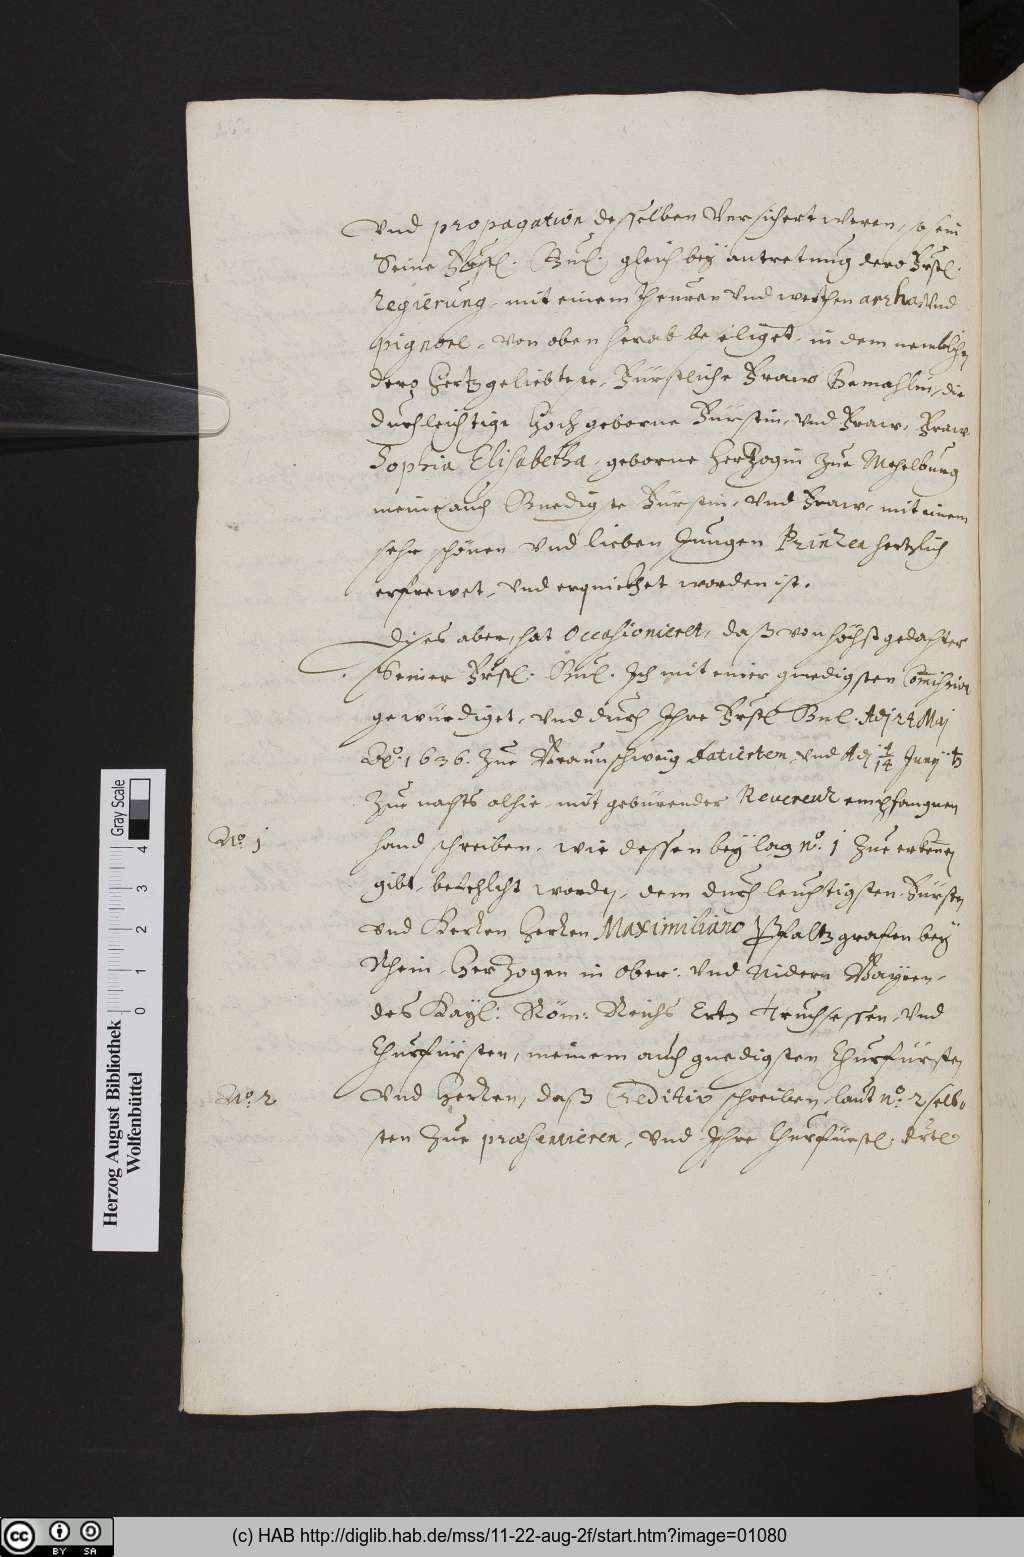 Vnd propagation desselben Versichert weren, so sein
Seine Fürstl. Gnl. gleich bey antretung dero Fürstl.
Regierung, mit einem theuren Vnd werthen arrha, Vnd
pignore, von oben herab beseliget, in dem nemblichen
dero Hertzgeliebteste, Fürstliche Fraw Gemahlin, die
durchleichtige Hochgeborne Fürstin, Vnd Fraw, Fraw
Sophia Elisabetha, geborne Hertzogin zue Mechelburg
meine auch Gnedigste Fürstin, Vnd Fraw, mit einem
sehr schönen Vnd lieben Jungen Prinzen hertzlich
erfrewet, Vnd erquickhet worden ist.
Dises aber, hat Occasionieret, daß von höchstgedachter
Seiner Fürstl. Gnl. Ich mit einer gnedigsten Commission
gewürdiget, Vnd durch Ihre Fürstl. Gnl. Adj 24 Maj
Ao. 1636. zue Braunschweig datierten, Vnd Adj 4/14 Junij
zue nachts alhie, mit gebürender Reverenz empfangnen
No. 1
hand schreiben, wie dessen beylag no. 1 zue erkennen
gibt, befehlcht worden, dem durchleuchtigsten Fürsten
Vnd Herren Herren Maximiliano Pfaltzgrafen bey
Rhein, Hertzogen in Ober: Vnd Nidern Bayren,
des Kayl: Röm: Reichs Ertz Truchsessen, Vnd
Churfürsten, meinem auch gnedigsten Churfürsten
No. 2
Vnd Herren, daß Creditiv schreiben, laut no. 2 selb
sten zue præsentieren, Vnd Ihre Churfürstl. Drtl.
Gray Scale
4 3 2 1 0
Herzog August Bibliothek
Wolfenbüttel
cc BY SA
(c) HAB http://diglib.hab.de/mss/11-22-aug-2f/start.htm?image=01080